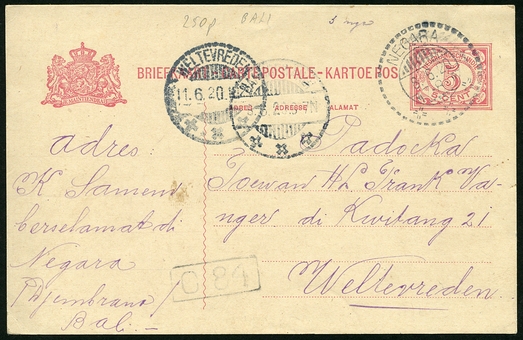 250p BALI
NEGARA
WELTEVREDEN
11.6.20
BRIEFKAART-CARTE POSTALE-KARTOE POS
5
5 CENT
JE MAINTIENDRAI
ADRES ADRESSE ALAMAT
adres:
K Samend
berselamat di
Negara
(Djembrana)
Bali.—
Padoeka
Toewan H L Frank Va-
nger di Kwitang 21
Weltevreden
C 84